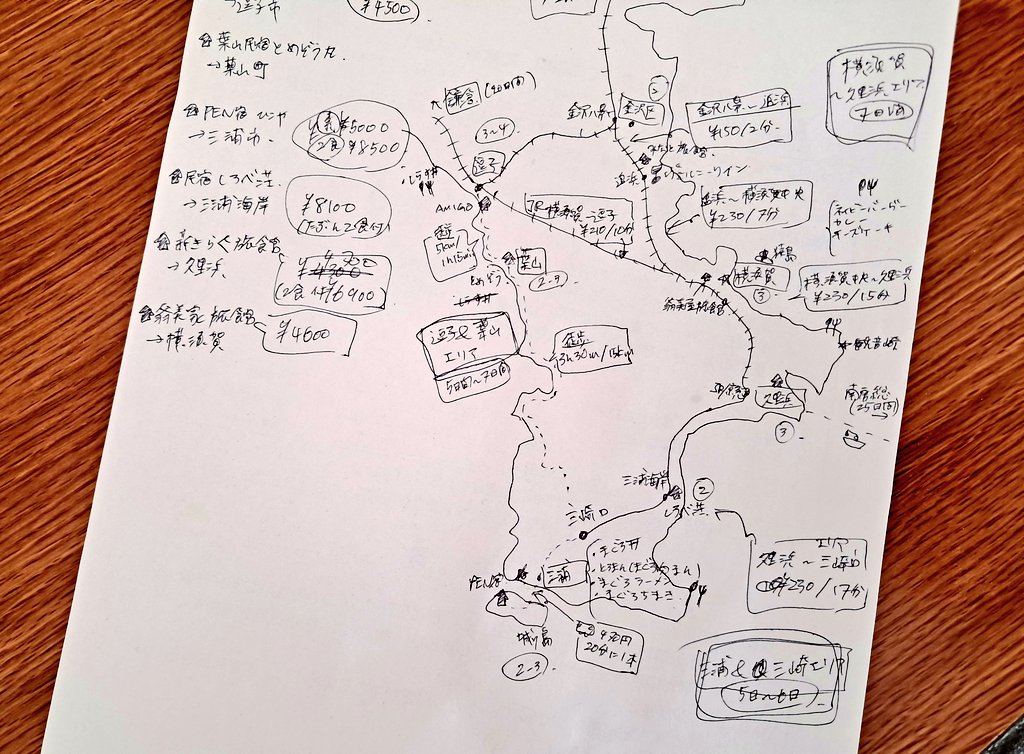 →逗子市
¥4500
葉山民宿とめぞう丸
→葉山町
PEN宿
→三浦市
素¥5000
2食¥8500
民宿しろべ荘
→三浦海岸
¥8100
(たぶん2食付)
旅館
→久里浜
¥4300
(2食付¥6900
翁美家旅館
→横須賀
¥4600
鎌倉(20日間)
3~4
逗子
しらす丼
AMIGO
徒歩
5km/
1h15min
とめぞう
葉山
2-3
しらす丼
逗子&葉山
エリア
5日間~7日間
徒歩
3h30m/15km
JR横須賀~逗子
¥210/10分
金沢八景
金沢区
2
金沢八景~追浜
¥150/2分
追浜
追浜~横須賀中央
¥230/7分
横須賀
~久里浜エリア
7日間
ネイビーバーガー
カレー
チーズケーキ
猿島
横須賀
3
横須賀中央~久里浜
¥230/15分
翁美家旅館
観音崎
久里浜
3
南房総
(25日間)
三浦海岸
2
しろべ荘
三崎口
エリア
久里浜~三崎口
¥230/17分
・まぐろ丼
・とろまん(まぐろまん)
・まぐろラーメン
・まぐろちまき
PEN宿
三浦
城ヶ島
2-3
20分に1本
三浦&三崎エリア
5日~6日